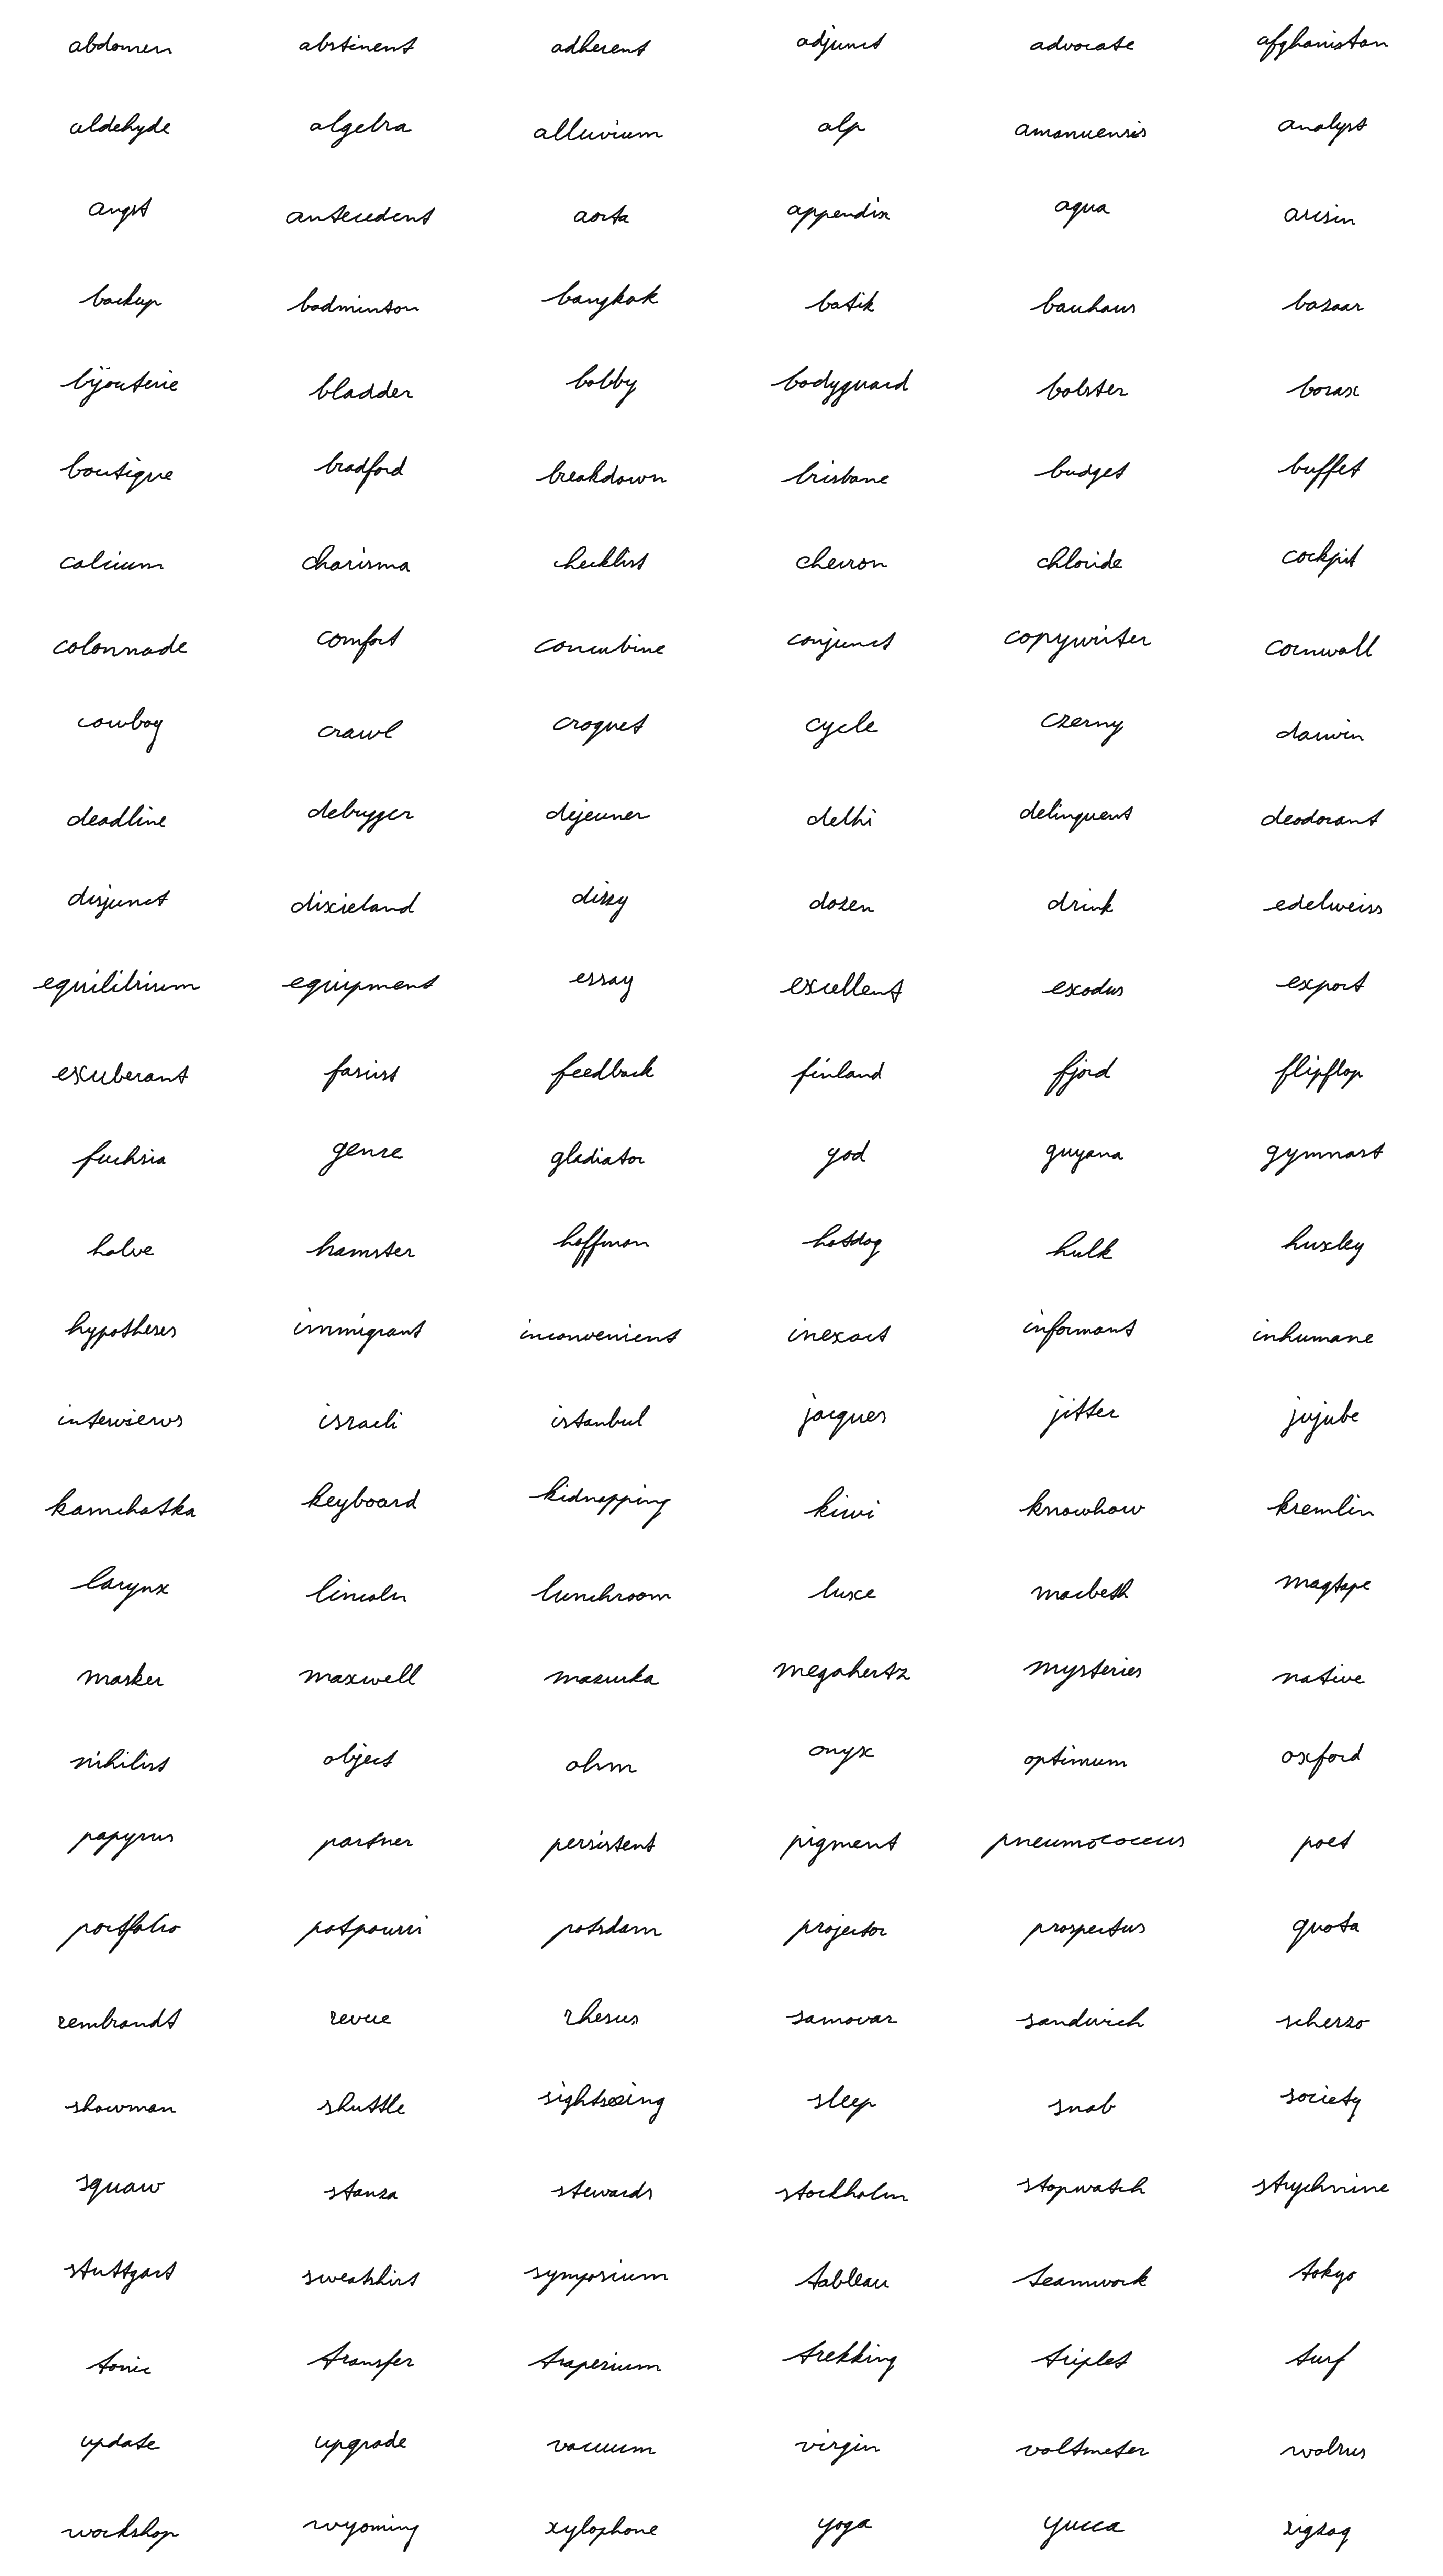 abdomen abstinent adherent adjunct advocate afghanistan
aldehyde algebra alluvium alp amanuensis analyst
angst antecedent aorta appendix aqua arisin
backup badminton bangkok batik bauhaus bazaar
bijouterie bladder bobby bodyguard bolster borax
boutique bradford breakdown brisbane budget buffet
calcium charisma checklist chevron chloride cockpit
colonnade comfort concubine conjunct copywriter cornwall
cowboy crawl croquet cycle czerny darwin
deadline debugger dejeuner delhi delinquent deodorant
disjunct dixieland dizzy dozen drink edelweiss
equilibrium equipment essay excellent exodus export
exuberant fascist feedback finland fjord flipflop
fuchsia genre gladiator god guyana gymnast
halve hamster hoffman hotdog hulk huxley
hypotheses immigrant inconvenient inexact informant inhumane
interviews israeli istanbul jacques jitter jujube
kamchatka keyboard kidnapping kiwi knowhow kremlin
larynx lincoln lunchroom luxe macbeth magtape
masker maxwell mazurka megahertz mysteries native
nihilist object ohm onyx optimum oxford
papyrus partner persistent pigment pneumococcus poet
portfolio potpourri potsdam projector prospectus quota
rembrandt revue rhesus samovar sandwich scherzo
showman shuttle sightseeing sleep snob society
squaw stanza stewards stockholm stopwatch strychnine
stuttgart sweatshirt symposium tableau teamwork tokyo
tonic transfer trapezium trekking triplet turf
update upgrade vacuum virgin voltmeter walrus
workshop wyoming xylophone yoga yucca zigzag